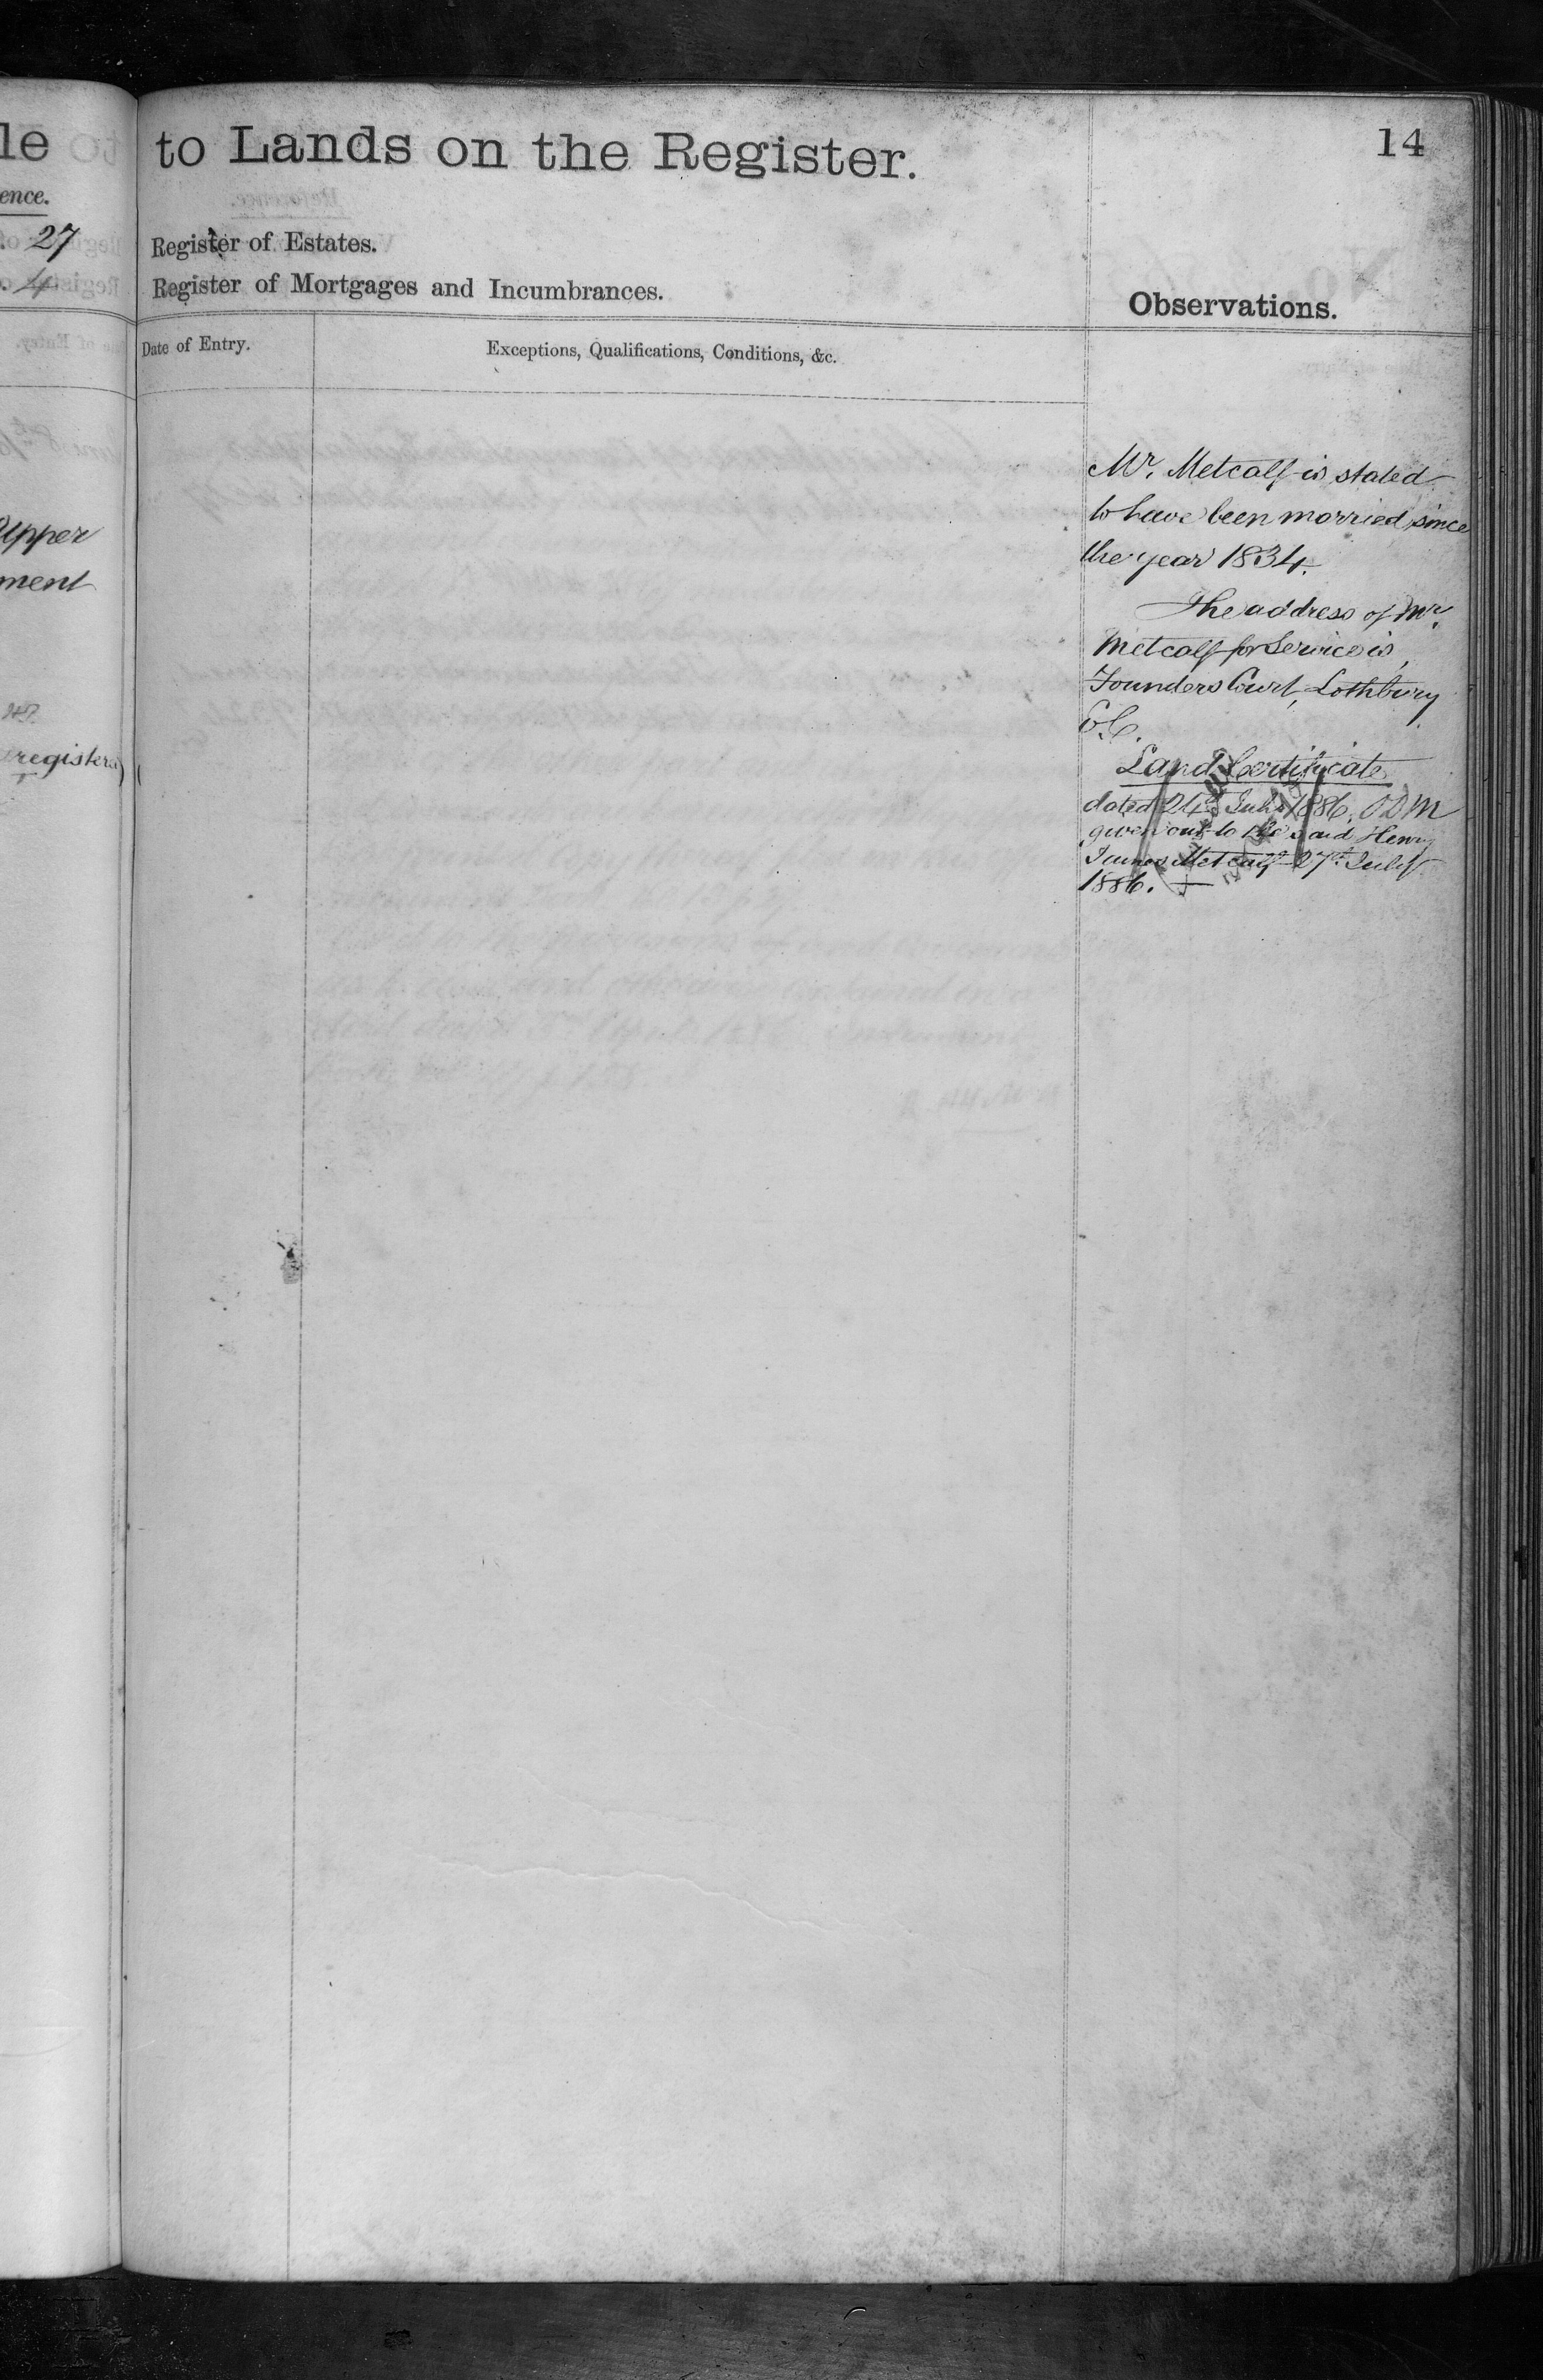 le
ence.
. 27
. 4
Upper
ment
registers)
to Lands on the Register.
14
Register of Estates.
Register of Mortgages and Incumbrances.
Observations.
Date of Entry.
Exceptions, Qualifications, Conditions, &c.
Mr. Metcalf is stated
to have been married since
the year 1834.
The address of Mr.
Metcalf for Service is,
Founders Court, Lothbury
E.C.
Land Certificate
dated 24th July 1886. ODM
given out to the said Henry
James Metcalf 27th July
1886.